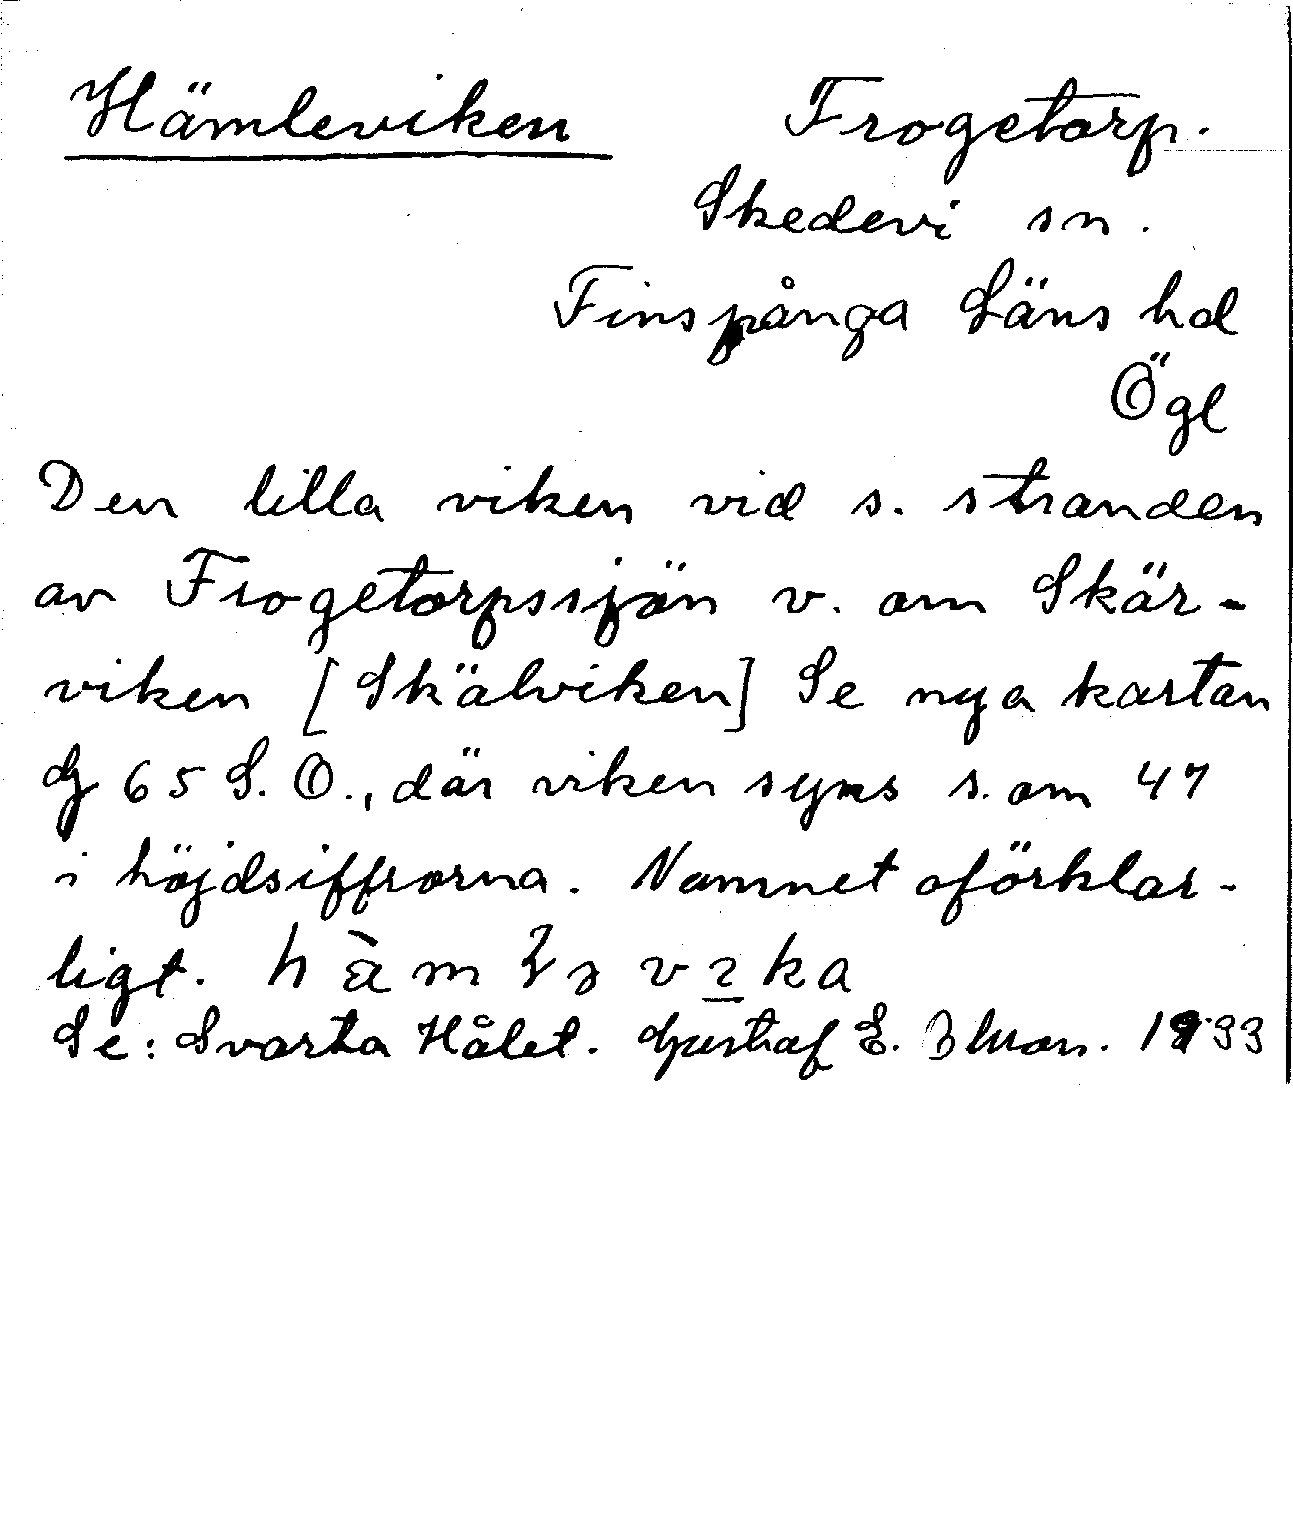 Hämleviken Frogetorp.
Skedevi sn.
Finspånga Läns hd
Ögl
Den lilla viken vid s. stranden
av Frogetorpssjön v. om Skär-
viken [Skälviken] Se nya kartan
G 65 S. O., där viken syns s. om 47
i höjdsiffrorna. Namnet oförklar-
ligt.
Se: Svarta Hålet. Gustaf E. 1933